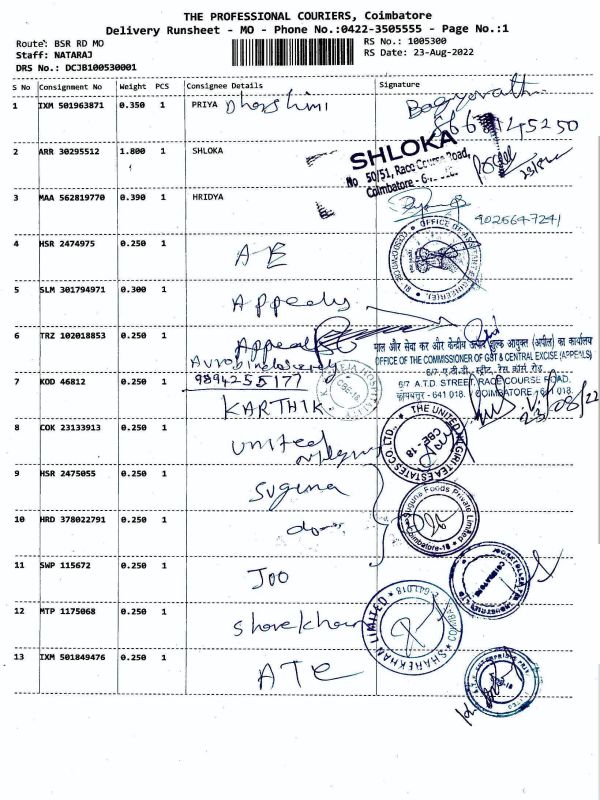 THE PROFESSIONAL COURIERS, Coimbatore
Delivery Runsheet - MO - Phone No.:0422-3505555 - Page No.:1
Route: BSR RD MO
RS No.: 1005300
Staff: NATARAJ
RS Date: 23-Aug-2022
DRS No.: DCJB100530001
S No Consignment No Weight PCS Consignee Details Signature
1 IXM 501963871 0.350 1 PRIYA Dharshini
2 ARR 30295512 1.800 1 SHLOKA
SHLOKA
No 50/51, Race Course Road,
Coimbatore -
23/8/22
3 MAA 562819770 0.390 1 HRIDYA
4 HSR 2474975 0.250 1 A E
OFFICE OF
5 SLM 301794971 0.300 1 Appeals
6 TRZ 102018853 0.250 1 Appeals
माल और सेवा कर और केन्द्रीय उत्पाद शुल्क आयुक्त (अपील) का कार्यालय
OFFICE OF THE COMMISSIONER OF GST & CENTRAL EXCISE (APPEALS)
6/7, ए.टी.डी. स्ट्रीट, रेस कोर्स रोड,
6/7 A.T.D. STREET, RACE COURSE ROAD,
कोयम्बतूर - 641 018. / COIMBATORE - 641 018.
23/08/22
9894255177
7 KOD 46812 0.250 1 KARTHIK
CBE-18
8 COK 23133913 0.250 1 united
THE UNITED NILGIRI TEA ESTATES CO LTD.,
CBE-18
9 HSR 2475055 0.250 1 Suguna
Suguna Foods Private Limited
Coimbatore-18
10 HRD 378022791 0.250 1
11 SWP 115672 0.250 1 JOO
12 MTP 1175068 0.250 1 Sharekhan
SHAREKHAN LIMITED
13 IXM 501849476 0.250 1 ATE